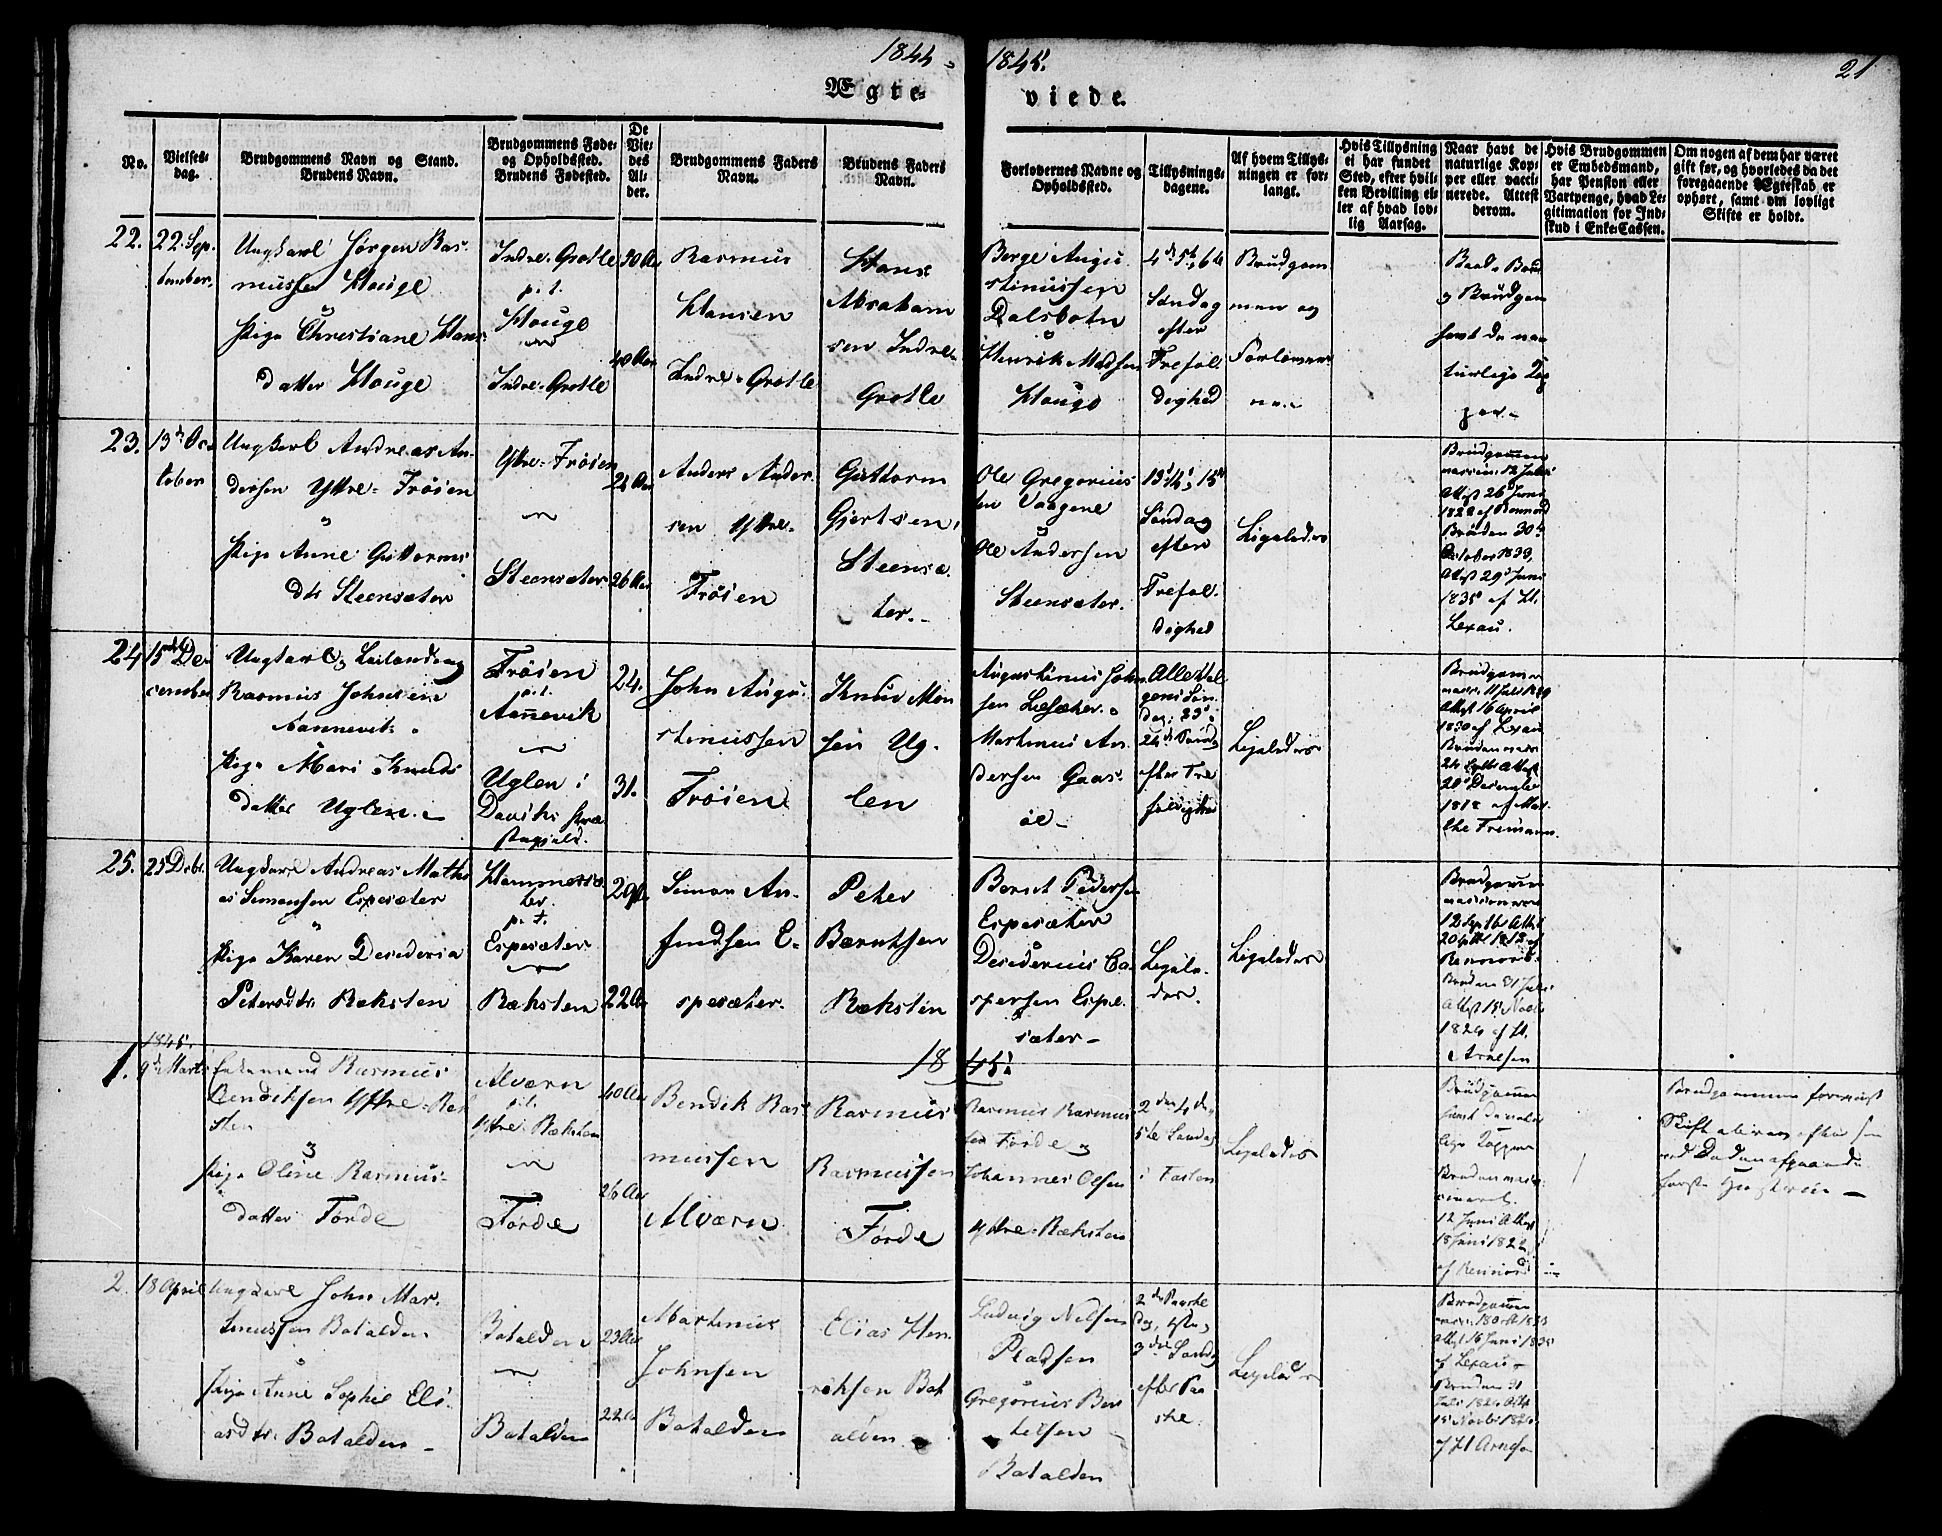 1844 1845. 21
Ægte- viede.
No.
Vielses-
dag.
Brudgommens Navn og Stand.
Brudens Navn.
Brudgommens Føde-
og Opholdssted.
Brudens Fødested.
De
Vie-
des
Al-
der.
Brudgommens Faders
Navn.
Brudens Faders
Navn.
Forlovernes Navne og
Opholdssted.
Tillysnings-
dagene.
Af hvem Tillys-
ningen er for-
langt.
Hvis Tillysning
ei har fundet
Sted, efter hvil-
ken Bevilling el-
ler af hvad lov-
lig Aarsag.
Naar havt de
naturlige Kop-
per eller vacci-
nerede. Attest
derom.
Hvis Brudgommen
er Embedsmand,
har Pension eller
Vartpenge, hvad Le-
gitimation for Ind-
skud i Enke-Cassen.
Om nogen af dem har været
gift før, og hvorledes da det
foregaaende Ægteskab er
ophørt, samt om lovligt
Skifte er holdt.
22.
22 Sep-
tember.
Ungkarl Jørgen Ras-
mussen Houge
og
Pige Christiane Hans-
datter Houge
Indre-Grotle
p. t.
Houge
Indre-Grotle
30 Aar
40 Aar
Rasmus
Hansen
Indre-Grotle
Hans
Abraham
sen Indre-
Grotle
Berge Augu
stinussen
Dalsbotn
og
Henrik Madsen
Houge
4de 5te 6te
Søndag
efter
Trefol
dighed
Brudgom
men og
Forlover
ne.
Baade Brud
og Brudgom
havt de na
turlige Kop
per.
23.
13de Oc-
tober
Ungkarl Andreas An-
dersen Yttre-Frøien
og
Pige Anne Guttorms
dtr Steensæter
Yttre-Frøien
Steensæter
26 Aar
Anders Ander-
sen Yttre-
Frøien
Guttorm
Gjertsen,
Steensæ-
ter.
Ole Gregorius
sen Vaagene
og
Ole Andersen
Steensæter.
13de 14de 15de
Søndag
efter
Trefol-
dighed
Ligeledes
Brudgommen
Attest 26 Juni
af Rennord
Bruden 30te
October 1833,
Attest 29de Juni
1835 af H.
Lexau.
24
15de De-
cember
Ungkarl og Leilænding
Rasmus Johnsen
Aannevik.
Pige Mari Knuds
datter Uglen.
Frøien
p. t.
Aannevik
Uglen i
Daviks Præ
stegjeld.
24.
31.
John Augu-
stinussen
Frøien
Knud Mon
sen Ug-
len
Augustinus John-
sen Lisæter.
Martinus An-
dersen Gaas-
øe
AlleHel-
gens Søn-
dag, 23de
24de Søndag
efter Tre
foldighed
Ligeledes
Brudgommen
Attest 16 April
1830 af Lexau
Bruden
Attest
20de December
1818 af
25.
25 Decbr.
Ungkarl Andreas Mathi
as Simonsen Espesæter
og
Pige Karen Desideria
Petersdtr. Ræksten
Hammersæ
ter.
p. t.
Espesæter
Ræksten
29 Aar
22 Aar
Simon An-
findsen E-
spesæter.
Peter
Bærntsen
Ræksten
Bernt Pedersen
Espesæter
og
Desiderius Ca-
spersen Espe-
sæter
Ligele-
des.
Ligeledes
Brudgommen
Bruden 31 Juli
Attest 15 Novbr
1824 af H.
Arnesen
1845.
1.
9de Marts
Enkemand Rasmus
Bendiksen Yttre-Ræk
sten
og
Pige Oline Rasmus-
datter Førde
Alværn
p. t.
Yttre-Ræksten
Førde
40 Aar
26 Aar
Bendik Ras-
mussen
Alværn
Rasmus
Rasmussen
Førde
Rasmus Rasmus
sen Førde og
Johannes Olsen
Yttre-Ræksten
2den 4de,
5te Søndag
i Fasten
Ligeledes
Brudgommen
havt de natur
lige Kopper
Bruden vacci-
neret
12 Juni Attest
18 Juni 1822
af Rennord
Brudgommen forevist
Skifte
ved Døden afgaaede
første Hustrue
2.
18 April
Ungkarl John Mar-
tinussen Batalden
og
Pige Anne Sophie Eli-
asdtr. Batalden
Batalden
Batalden
23 Aar
22 Aar
Martinus
Johnsen
Batalden
Elias Hen-
riksen Bat
alden
Ludvig Nilsen
Pladsen
Gregorius Ber
telsen
Batalden
2den Paaske
dag, 1ste,
3die Søndag
efter Paa
ske.
Ligeledes
Brudgommen
Attest 16 Juni 1835
af Lexau
Bruden 31
Juli 1824 Attest
15 Novbr 1824
af H Arnesen